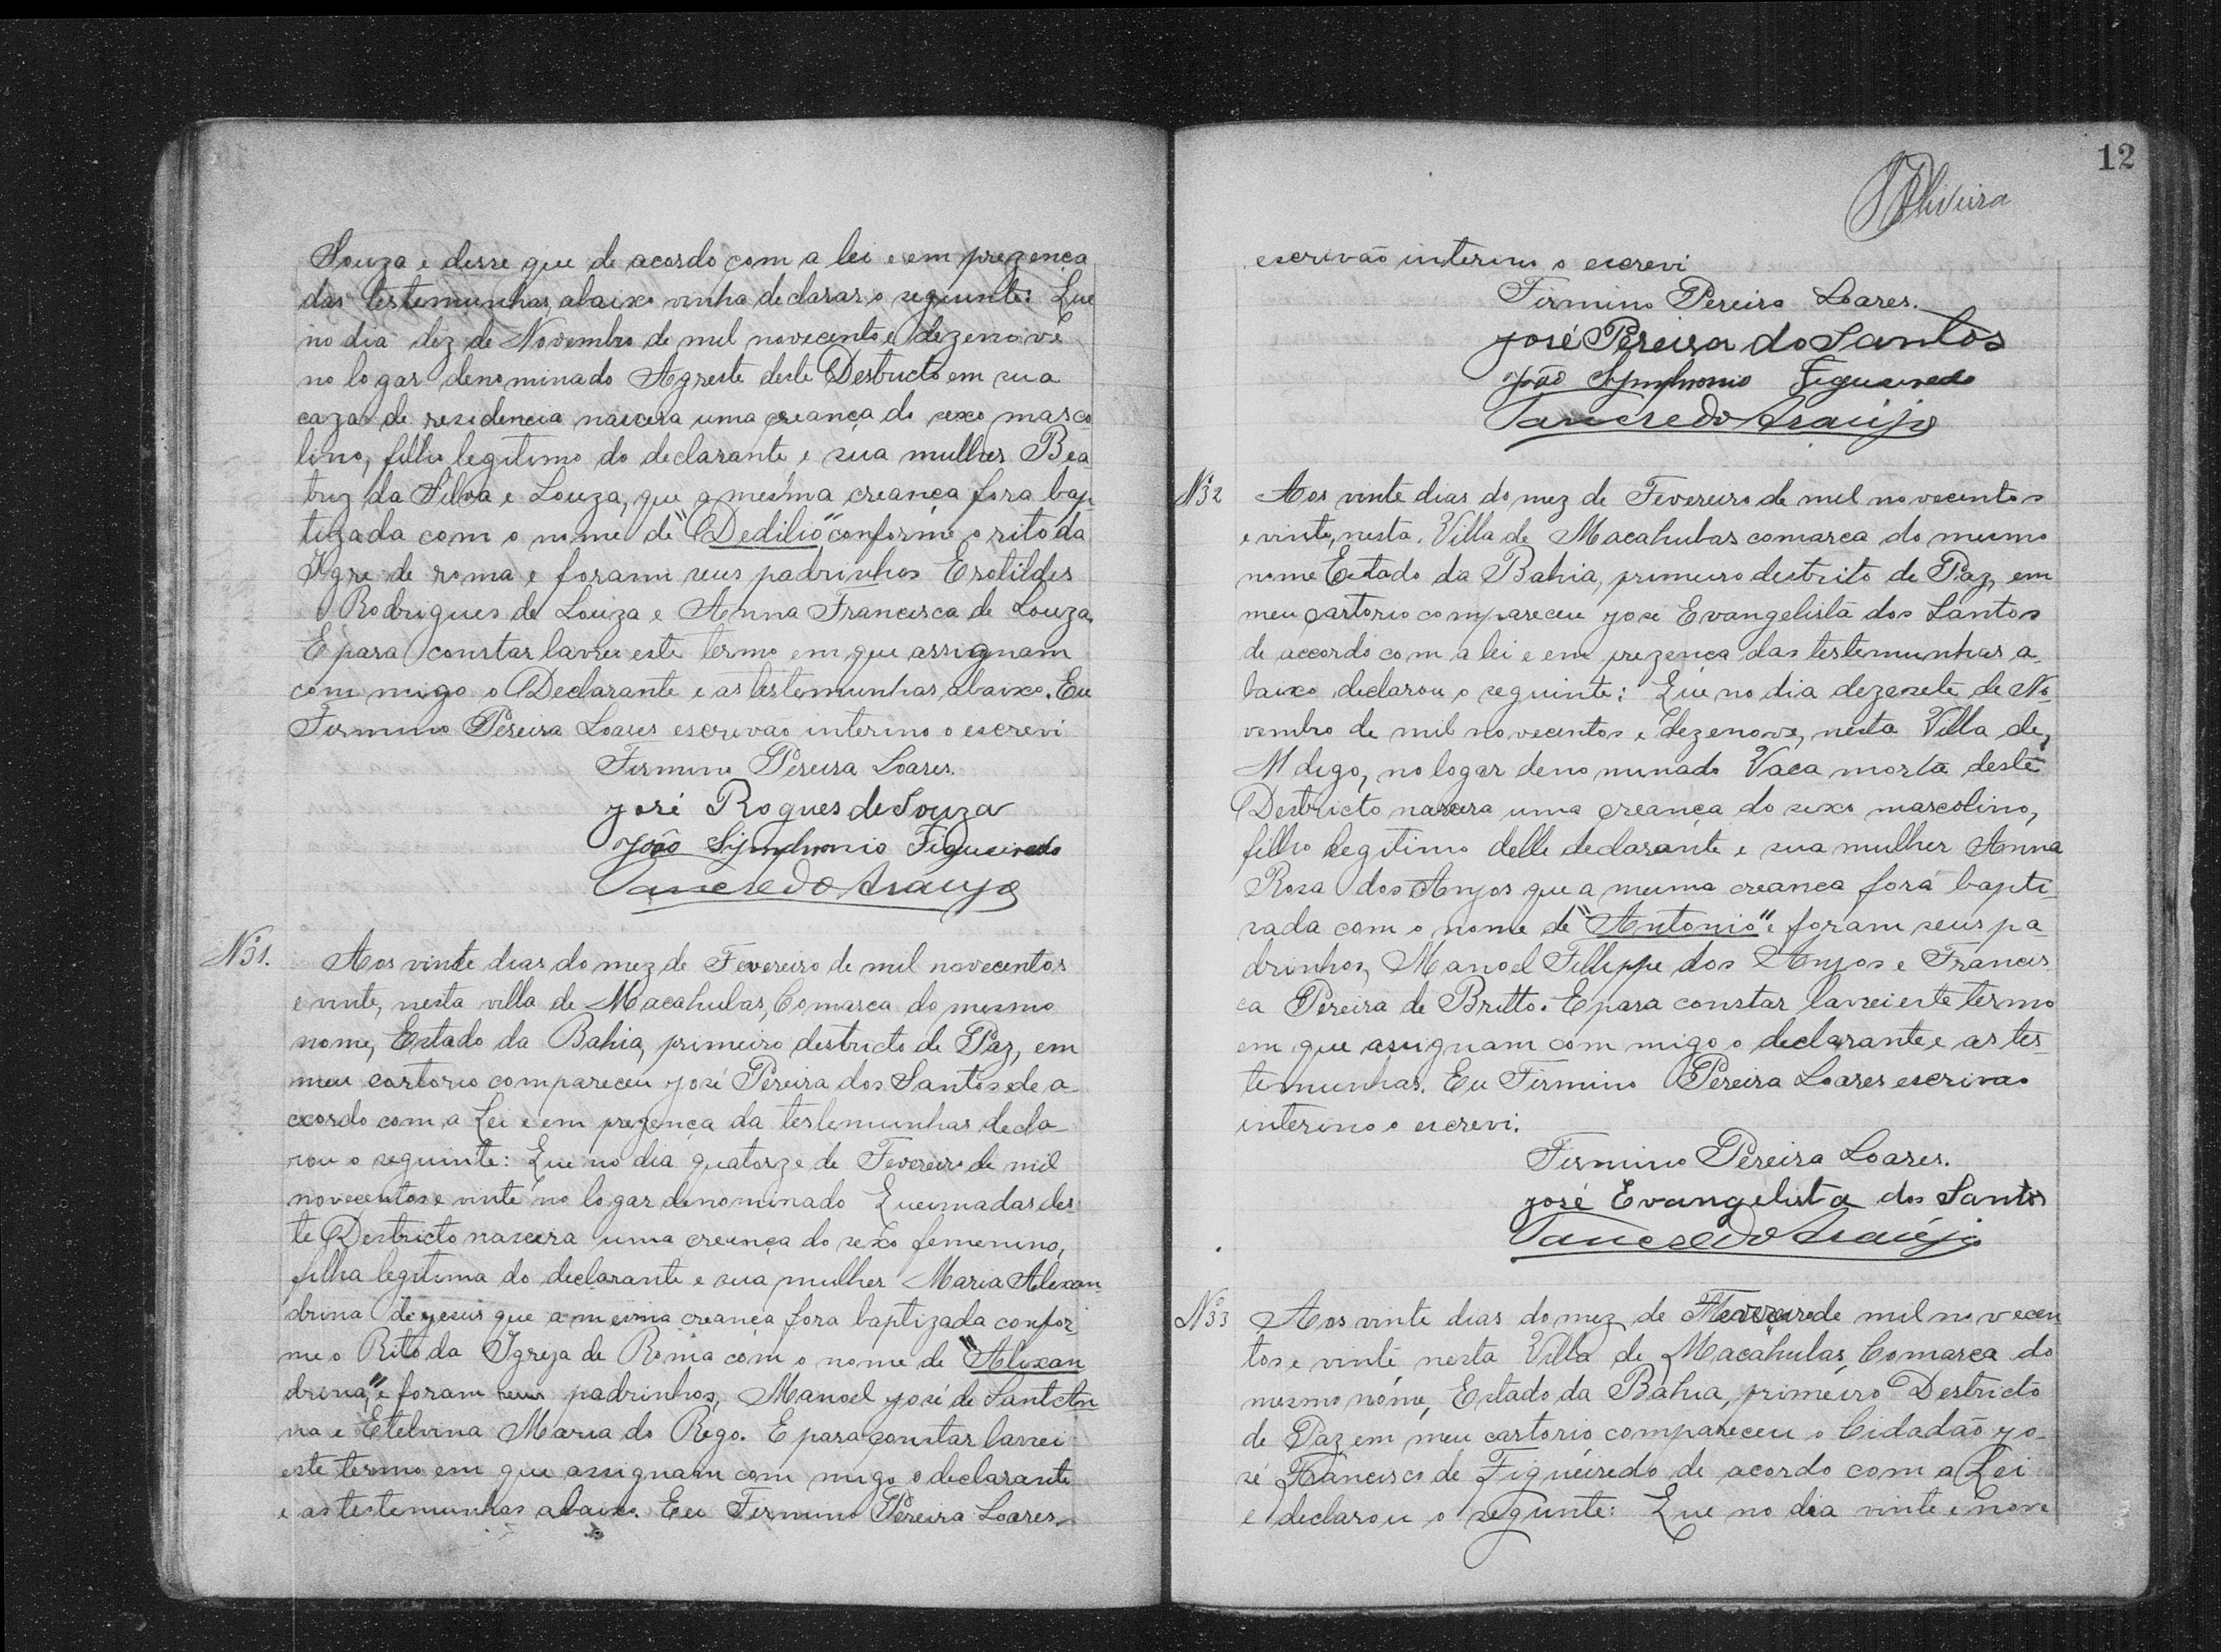 Souza e desse que de acordo com a lei e em prezença
das testemunhas, abaixo vinha declarar o seguinte: Que
no dia dez de Novembro de mil novecento e dezenove
no logar denominado Agreste deste Destricto em sua
caza de residencia nascera uma creança do sexo masco
lino, filho legitimo do declarante e sua mulher Bea
triz da Silva e Souza, que a mesma creança fora bap-
tizada com o nome de "Dedilio" conforme o rito da
Igre de roma e foram seus padrinhos Erotildes
Rodrigues de Souza e Anna Francisca de Souza.
E para constar lavrei este termo em que assignam
com migo o Declarante e as testemunhas abaixo. Eu
Firmino Pereira Soares escrevão interino o escrevi
Firmino Pereira Soares.
José Roques de Souza
João Symphronio Figueiredo
Tancredo Araujo
Nº31. Aos vinte dias do mez de Fevereiro de mil novecentos
e vinte, nesta villa de Macahubas, Comarca do mesmo
nome, Estado da Bahia, primeiro destricto de Paz, em
meu cartorio compareceu José Pereira dos Santos e de a-
ccordo com a Lei e em prezença da testemunhas decla-
rou o seguinte: Que no dia quatorze de Fevereiro de mil
novecentos e vinte no logar denominado Queimadas des-
te Destricto nascera uma creança do sexo femenino,
filha legitima do declarante e sua mulher Maria Alexan-
drina de Jesus que a mesma creança fora baptizada confor-
me o Rito da Igreja de Roma com o nome de "Alexan
drina", e foram seus padrinhos, Manoel José de Sant'An
na e Etelvina Maria do Rego. E para constar lavrei
este termo em que assignam com migo o declarante
e as testemunhas abaixo. Eu Firmino Pereira Soares,
12
Oliveira
escrevão interino o escrevi
Firmino Pereira Soares.
José Pereira do Santos
João Symphronio Figueiredo
Tancredo Araújo
Nº32 Aos vinte dias do mez de Fevereiro de mil novecentos
e vinte, nesta Villa de Macahubas comarca do mesmo
nome Estado da Bahia, primeiro destrito de Paz, em
meu cartorio compareceu José Evangelista dos Santos
de accordo com a lei e em prezença das testemunhas a-
baixo declarou o seguinte: Que no dia dezesete de No-
vembro de mil novecentos e dezenove, nesta Villa de,
M digo, no logar denominado Vaca morta deste
Destricto nascera uma creança do sexo mascolino,
filho legitimo delle declarante e sua mulher Anna
Rosa dos Anjos que a mesma creança fora bapti-
sada com o nome de "Antonio" e foram seus pa-
drinhos, Manoel Fellippe dos Anjos e Francis
ca Pereira de Britto. E para constar lavrei este termo
em que assignam com migo o declarante e as tes-
temunhas. Eu Firmino Pereira Soares escrivao
interino o escrevi.
Firmino Pereira Soares.
José Evangelista dos Santos
Tancredo Araújo
Nº33 Aos vinte dias do mez de Fevereiro de mil novecen
tos e vinte nesta Villa de Macahubas, Comarca do
mesmo nome, Estado da Bahia, primeiro Destricto
de Paz em meu cartorio compareceu o Cidadão Jo-
sé Francisco de Figueiredo de acordo com a Lei
e declarou o segunte: Que no dia vinte e nove